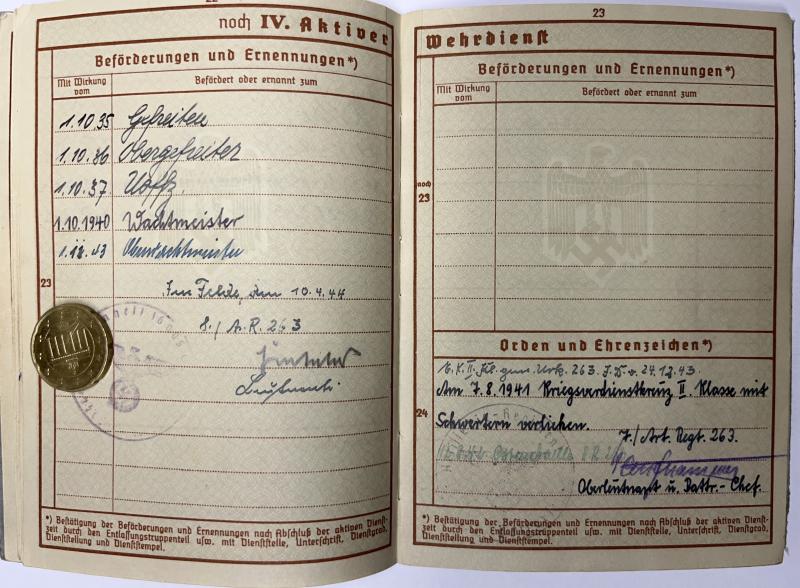 22
noch IV. Aktiver
Beförderungen und Ernennungen*)
Mit Wirkung vom
Befördert oder ernannt zum
1.10.35 Gefreiten
1.10.36 Obergefreiter
1.10.37 Uoffz.
1.10.1940 Wachtmeister
1.12.43 Oberwachtmeister
23
Im Felde, den 10.4.44
8./A.R. 263
Leutnant
*) Bestätigung der Beförderungen und Ernennungen nach Abschluß der aktiven Dienst-
zeit durch den Entlassungstruppenteil usw. mit Dienststelle, Unterschrift, Dienstgrad,
Dienststellung und Dienststempel.
23
Wehrdienst
Beförderungen und Ernennungen*)
Mit Wirkung vom
Befördert oder ernannt zum
noch
23
Orden und Ehrenzeichen*)
E.K. II. Kl. gem. Urk. 263. I.D. v. 24.12.43.
Am 7.8.1941 Kriegsverdienstkreuz II. Klasse mit
24
Schwertern verliehen.
7./Art. Regt. 263.
Oberleutnant u. Battr.-Chef.
*) Bestätigung der Beförderungen und Ernennungen nach Abschluß der aktiven Dienst-
zeit durch den Entlassungstruppenteil usw. mit Dienststelle, Unterschrift, Dienstgrad,
Dienststellung und Dienststempel.